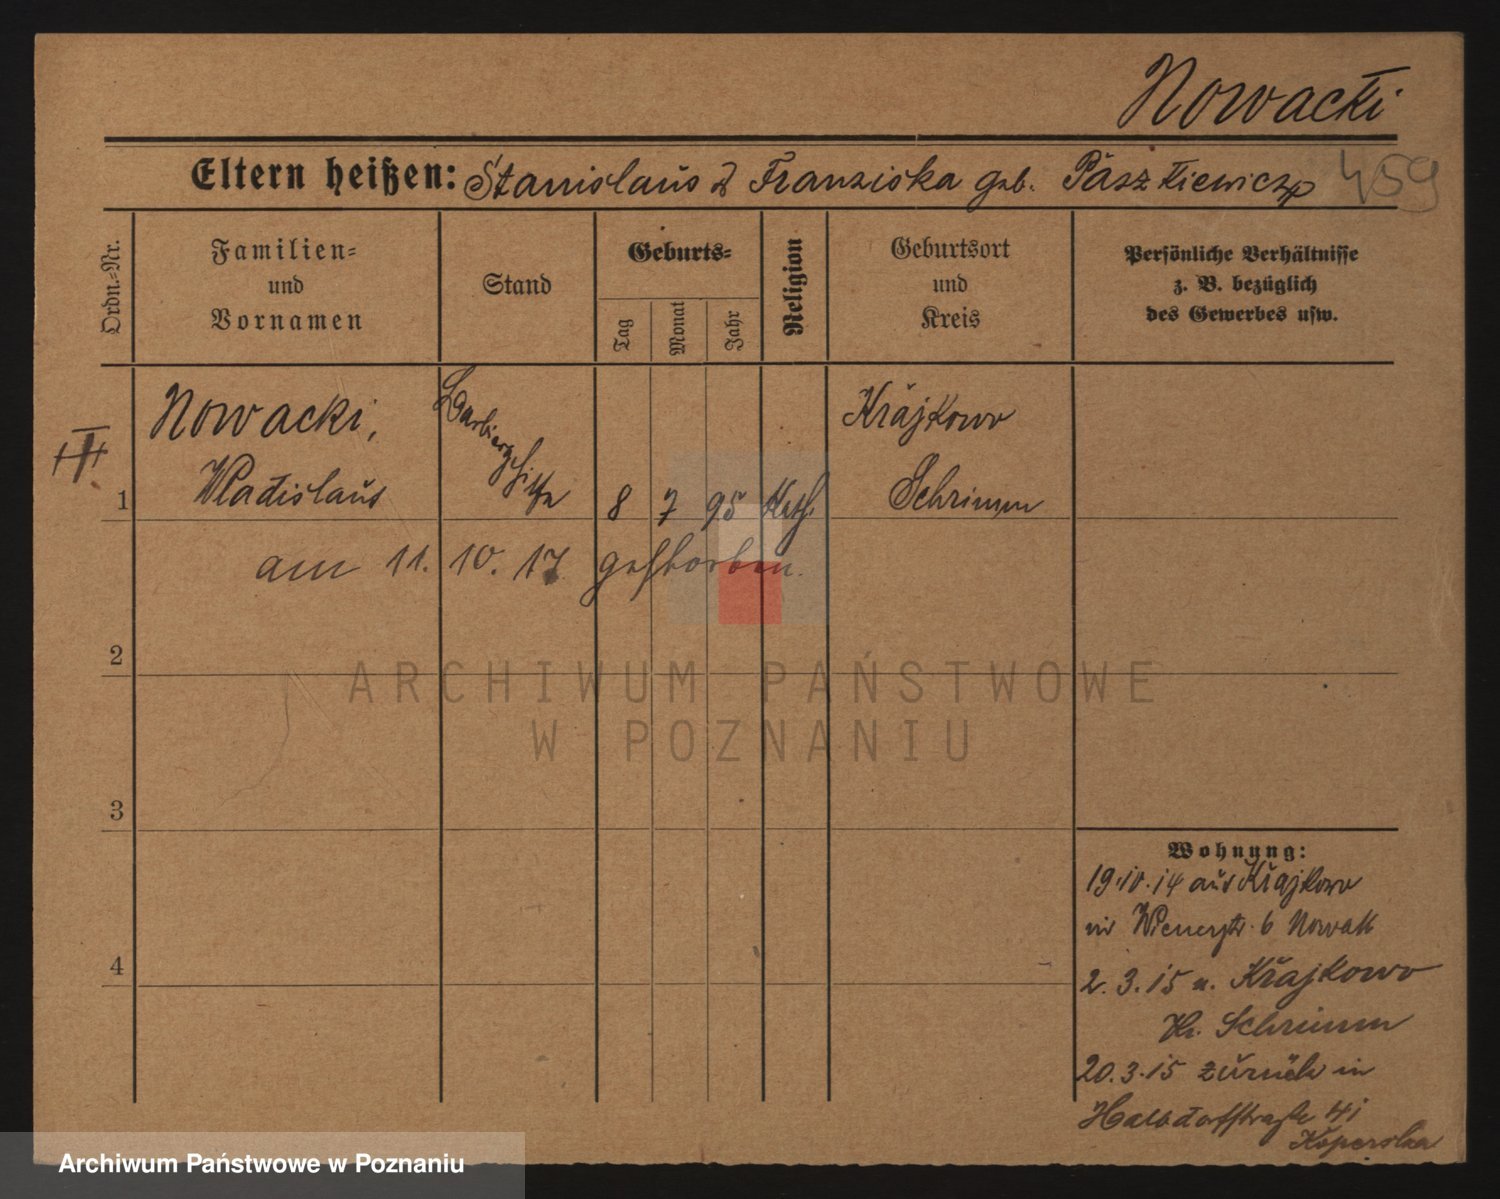 Nowacki
Eltern heißen: Stanislaus & Franziska geb. Paszkiewicz 459
Ordn.-Nr.
Familien- und Vornamen
Stand
Geburts-
Tag
Monat
Jahr
Religion
Geburtsort und Kreis
Persönliche Verhältnisse z. B. bezüglich des Gewerbes usw.
1
Nowacki,
Wladislaus
Barbiergehilfe
8 7 95 Kath.
Krajkowo
Schrimm
am 11. 10. 17 gestorben.
2
3
4
Wohnung:
19.10.14 aus Krajkowo
in Wienerstr. 6 Nowak
2.3.15 n. Krajkowo
Kr. Schrimm
20.3.15 zurück in
Halbdorfstraße 41
Koperska
ARCHIWUM PAŃSTWOWE
W POZNANIU
Archiwum Państwowe w Poznaniu